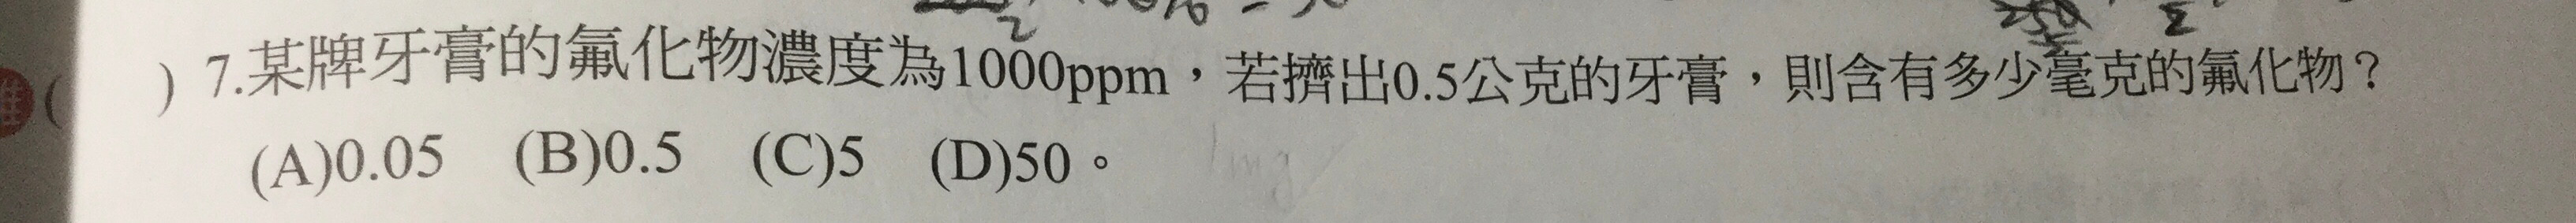 ( ) 7.某牌牙膏的氟化物濃度為1000ppm，若擠出0.5公克的牙膏，則含有多少毫克的氟化物？
(A)0.05 (B)0.5 (C)5 (D)50。